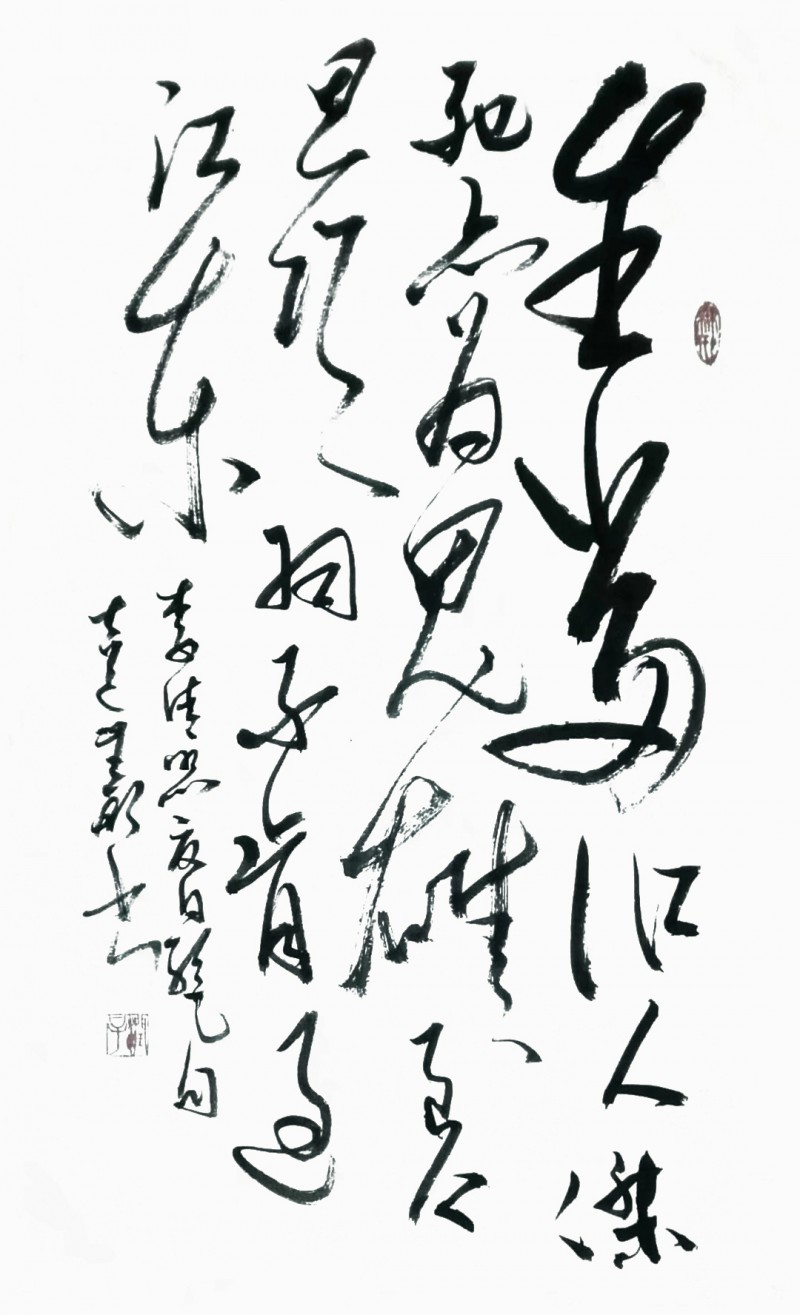 生當作人傑
死亦為鬼雄至今
思項羽不肯過
江東
李清照夏日絶句